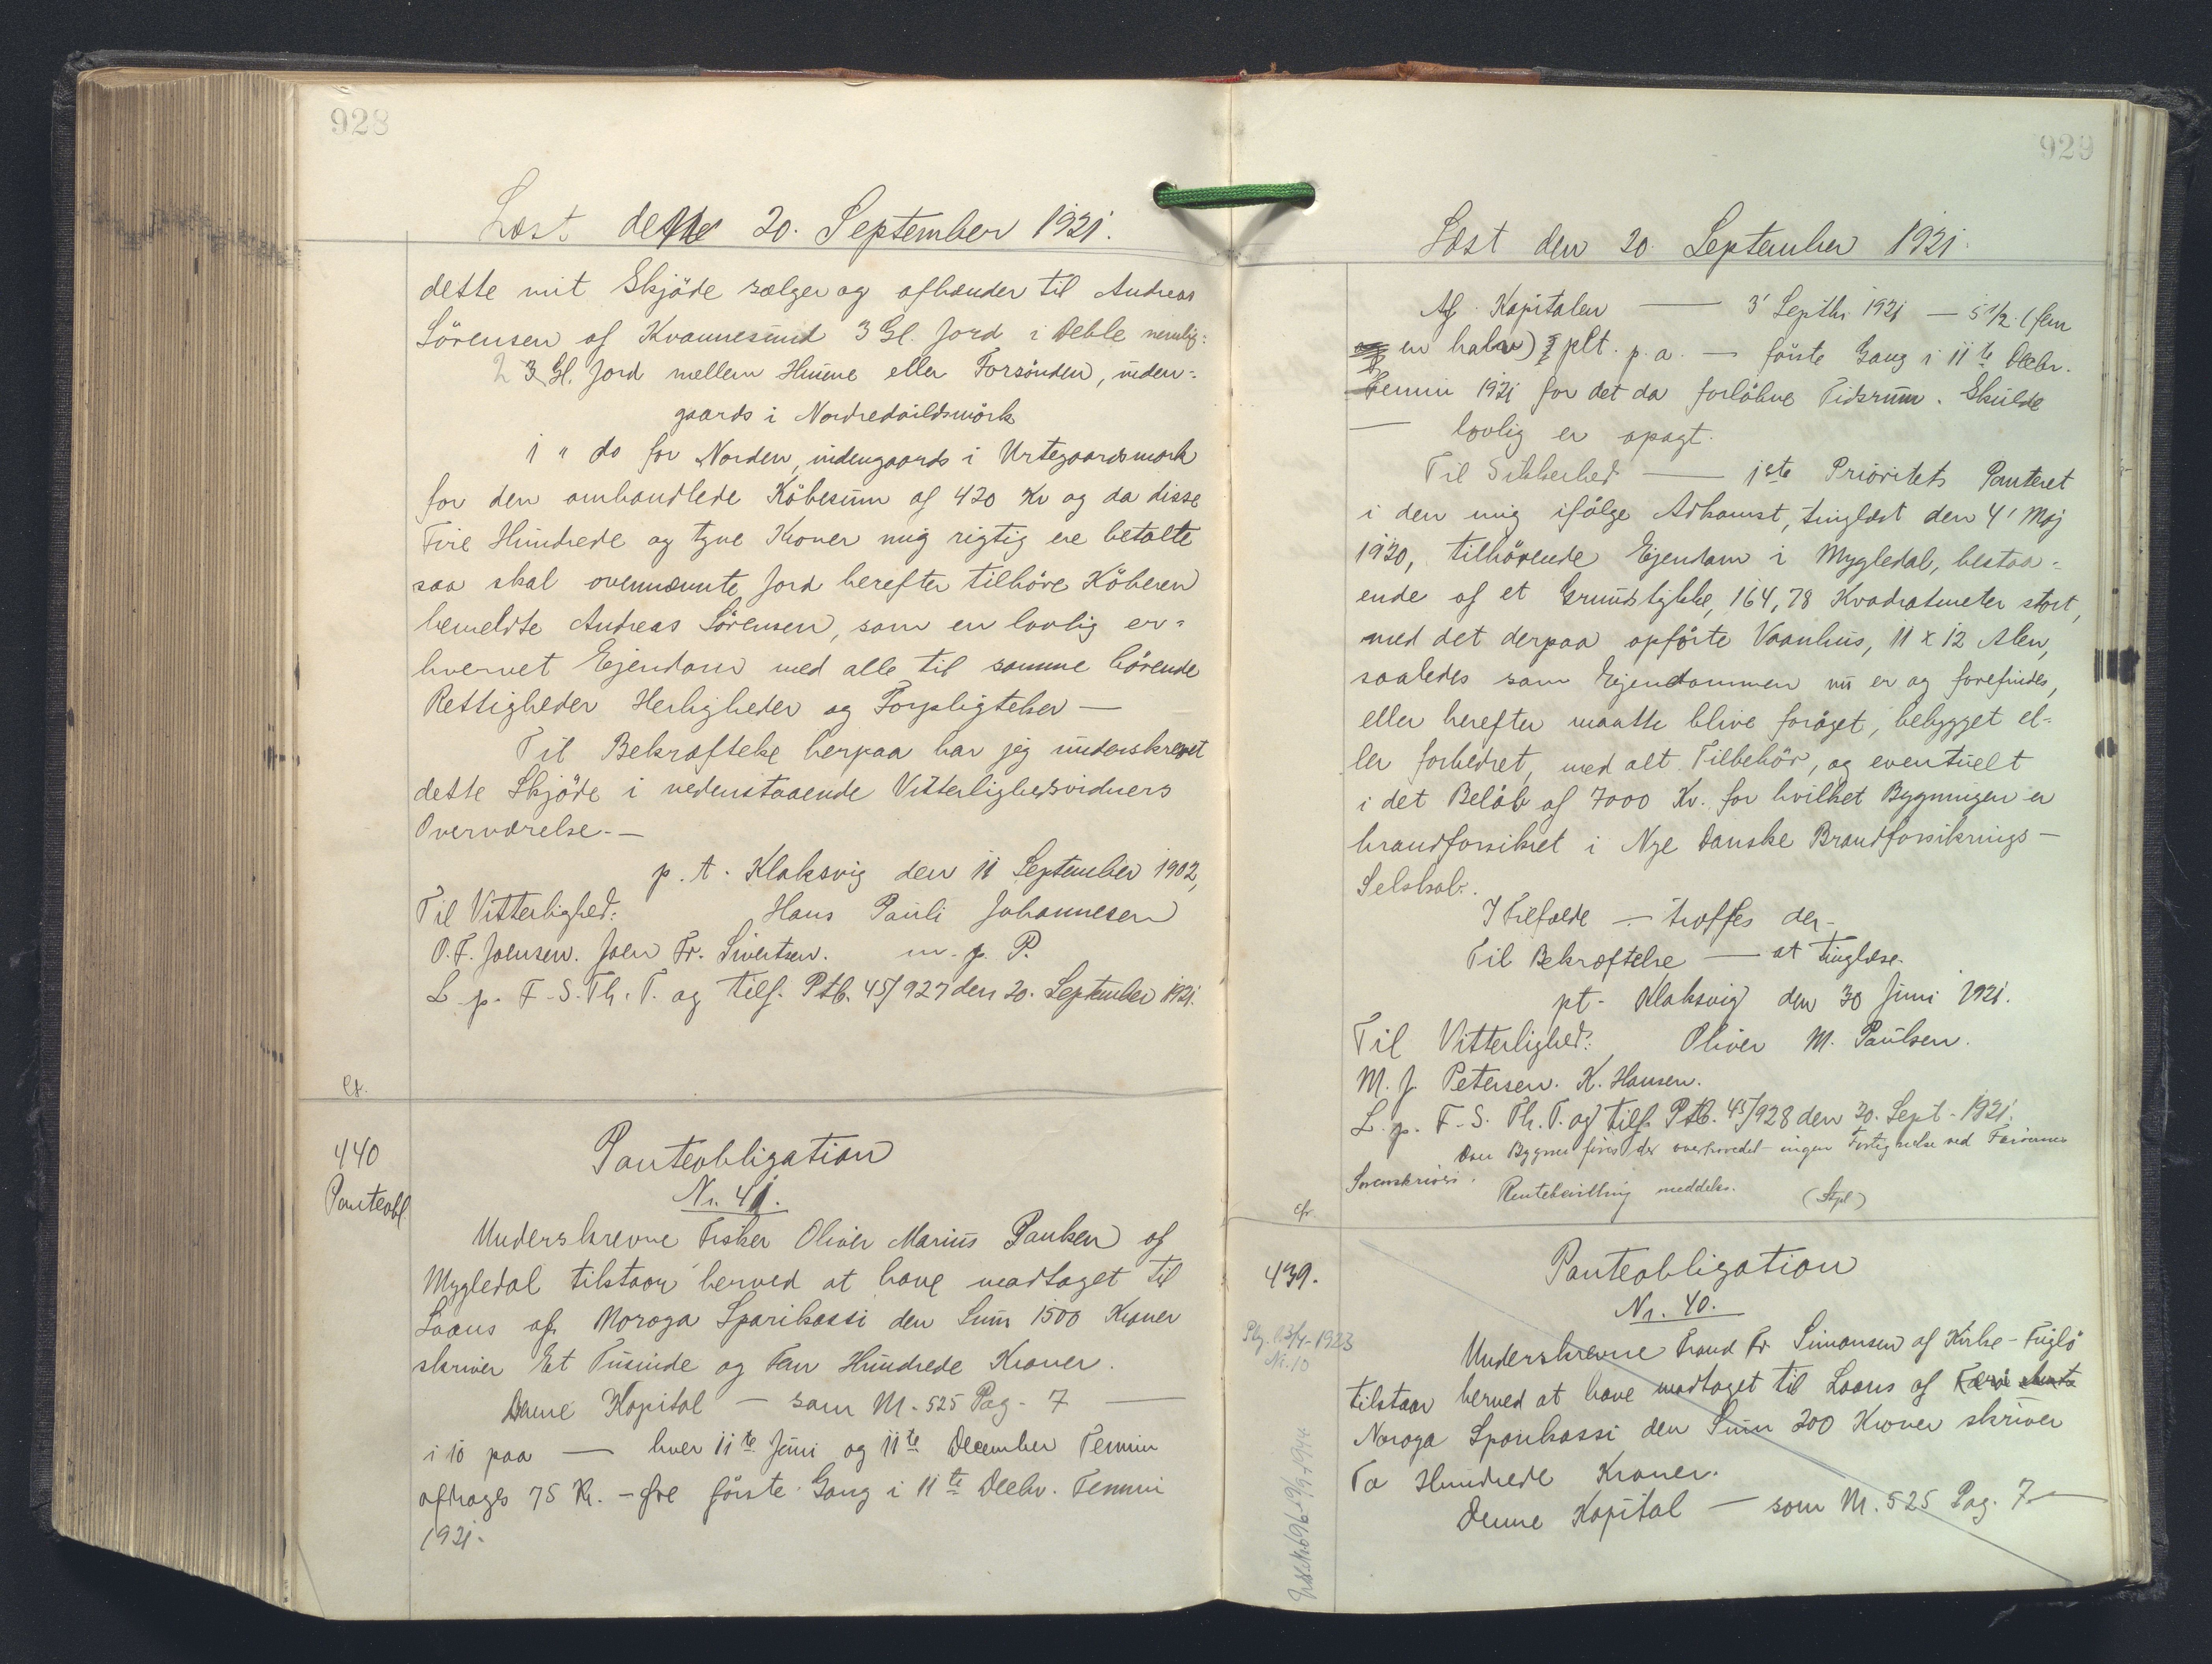 928
Læst den 20. September 1921.
dette mit Skjöde sælger og afhænder til Andreas
Sörensen af Kvannesund 3 Gl. Jord i Deble nemlig:
2 Gl. Jord mellem Humme eller Forsönden, inden-
gaards i Nordredvildsmörk
1 " do for Norden, indengaards i Urtegaardsmörk
for den omhandlede Köbesum af 420 Kr og da disse
Fire Hundrede og tyve Kroner mig rigtig ere betalte
saa skal ovennævnte Jord herefter tilhöre Köberen
bemeldte Andreas Sörensen, som en lovlig er-
hvervet Ejendom med alle til samme hörende
Rettigheder Herligheder og Forpligtelser —
Til Bekræftelse herpaa har jeg underskrevet
dette Skjöde i nedenstaaende Vitterlighedsvidners
Overværelse. —
p. t. Klaksvig den 11 September 1902,
Til Vitterlighed: Hans Pauli Johannesen
O. F. Joensen. Joen Fr. Sivertsen. m. p. P.
L. p. F. S. Th. T. og tilf. Ptb. 45/927 den 20. September 1921.
cf.
440
Panteobl
Panteobligation
Nr. 41.
Underskrevne Fisker Oliver Marius Paulsen af
Mygledal tilstaar herved at have modtaget til
Laans af Noroya Sparikassi den Sum 1500 Kroner
skriver Et Tusinde og Fem Hundrede Kroner.
Denne Kapital — som M. 525 Pag. 7 —
i 10 paa — hver 11te Juni og 11te December Termin
afdrages 75 Kr. — före förste Gang i 11te Decbr. Termin
1921.
929
Læst den 20. September 1921.
Af Kapitalen — 3' Septbr 1921 — 5 1/2 (fem
en halv) plt. p. a. — förste Gang i 11te Decbr.
Termin 1921 for det da forlöbne Tidsrum. Skulde
— lovlig er opsagt.
Til Sikkerhed — 1ste Prioritets Panteret
i den mig ifölge Adkomst, tinglæst den 4' Maj
1920, tilhörende Ejendom i Mygledal, bestaa-
ende af et Grundstykke, 164,78 Kvadratmeter stort,
med det derpaa opförte Vaanhus, 11 x 12 Alen,
saaledes som Ejendommen nu er og forefindes,
eller herefter maatte blive foröget, bebygget el-
ler forbedret, med alt Tilbehör, og eventuelt
i det Belöb af 7000 Kr. for hvilket Bygningen er
brandforsikret i Nye Danske Brandforsikrings-
Selskab.
I Tilfælde — træffes der
Til Bekræftelse — at tinglæse.
pt. Klaksvig den 30 Juni 1921.
Til Vitterlighed: Oliver M. Paulsen.
M. J. Petersen. K. Hansen.
L. p. F. S. Th. T. og tilf. Ptb. 45/928 den 20. Sept. 1921.
Om Bygn findes der overhovedet ingen Forlignelse ved Færöernes
Sorenskriveri.
Rentebevilling meddeles. (Stpl)
cfr
439.
Nr. 10
Panteobligation
Nr. 40.
Underskrevne Trond Fr Simonsen af Kirke-Fuglö
tilstaar herved at have modtaget til Laans af
Noroya Sparikassi den Sum 200 Kroner skriver
To Hundrede Kroner.
Denne Kapital — som M. 525 Pag. 7 —